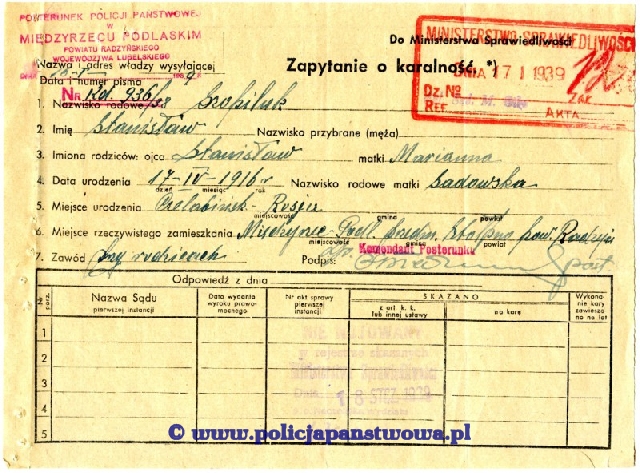 POSTERUNEK POLICJI PAŃSTWOWEJ
w
MIĘDZYRZECU PODLASKIM
POWIATU RADZYŃSKIEGO
WOJEWÓDZTWA LUBELSKIEGO
Nazwa i adres władzy wysyłającej
Data i numer pisma
NR Kol. 936/38
Do Ministerstwa Sprawiedliwości
Zapytanie o karalność *)
MINISTERSTWO SPRAWIEDLIWOŚCI
DNIA 17 I 1939
Dz. №
REF.
AKTA
1. Nazwisko rodowe
2. Imię Stanisław Nazwisko przybrane (męża)
3. Imiona rodziców: ojca Stanisław matki Marianna
4. Data urodzenia 17-IV-1916 r Nazwisko rodowe matki Sadowska
dzień miesiąc rok
5. Miejsce urodzenia Czelabińsk - Rosja
miejscowość gmina powiat
6. Miejsce rzeczywistego zamieszkania Międzyrzec - Podl.
miejscowość gmina powiat
Komendant Posterunku
7. Zawód przy rodzicach Podpis:
Odpowiedź z dnia
№ porz.
Nazwa Sądu
pierwszej instancji
Data wydania
wyroku prawo-
mocnego
Nr akt sprawy
pierwszej
instancji
SKAZANO
z art. k. k.
lub innej ustawy
na karę
Wykona-
nie kary
zawiesza
no na lat
1
2
3
4
5
NIE NOTOWANY
w rejestrze skazanych
Ministerstwa Sprawiedliwości
Dnia 18 STYCZ. 1939
© www.policjapanstwowa.pl